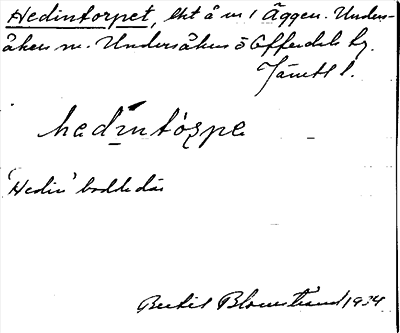 Hedintorpet, lht å nr 1 Äggen. Unders-
åkers sn. Undersåkers o Offerdals tg.
Jämtl l.
hedintórpe
'Hedin' bodde där
Bertil Blomstrand 1934